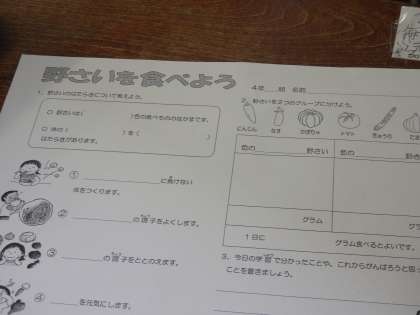 野さいを食べよう
4年　組　名前
1．野さいのはたらきについて考えよう。
○ 野さいは（　　　　）色の食べもののなかまです。
○ 体の（　　　　）を（　　　　）
はたらきがあります。
① ＿＿＿＿に負けない
体をつくります。
② ＿＿＿＿の調子をよくします。
③ ＿＿＿＿の調子をととのえます。
④ ＿＿＿＿を元気にします。
2．野さいを2つのグループに分けよう。
にんじん　なす　かぼちゃ　トマト　きゅうり
色の　　野さい　色の　　野さ
グラム　グラ
1日に　　グラム食べるとよいです。
3．今日の学習で分かったことや、これからがんばろうと思っ
ことを書きましょう。